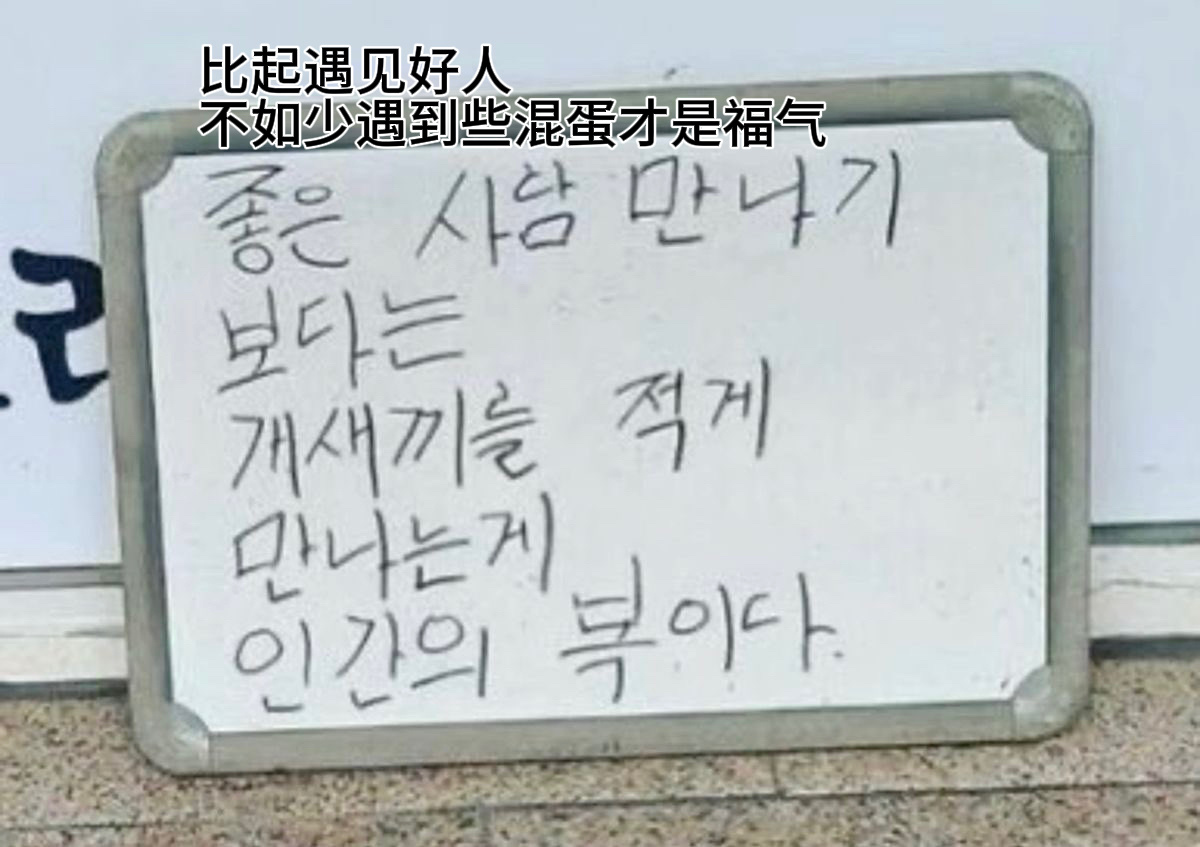 比起遇见好人
不如少遇到些混蛋才是福气
좋은 사람 만나기
보다는
개새끼를 적게
만나는게
인간의 복이다.